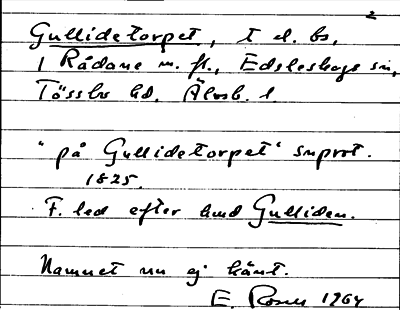 2
Gullidetorpet, t d. bs,
1 Rådane m. fl., Edsleskogs sn,
Tössbo hd. Älvsb. l
"på Gullidetorpet" snprot.
1825.
F. led efter lmd Gulliden.
Namnet nu ej känt.
E. Rosell 1964